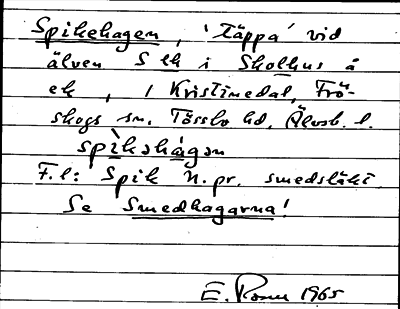 Spikehagen, 'täppa' vid
älven S ek i Skolhus å
ek, / Kristinedal, Frö-
skogs sn. Tössbo hd. Älvsb. l.
spìkahágan
F.l: Spik n.pr. smedsläkt
Se Smedhagarna!
E. 1965